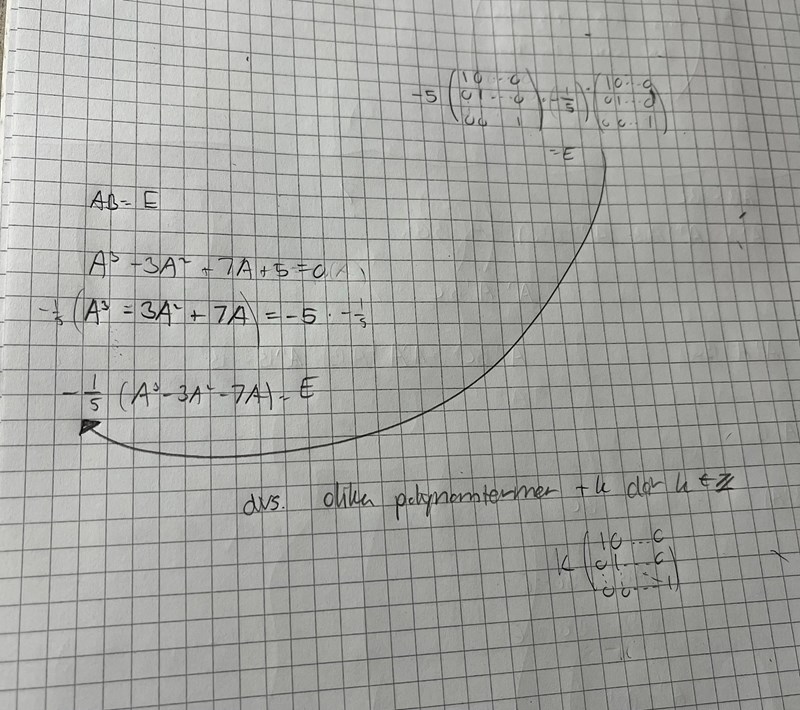 -5 (10...0 01...0 00 1) · (-1/5) · (10...0 01...0 00..1)
= E
AB = E
A³ - 3A² + 7A + 5 = 0
-1/5 (A³ = 3A² + 7A) = -5 · -1/5
-1/5 (A³ - 3A² - 7A) = E
dvs. olika polynomtermer + k där k ∈ ℤ
k (10...0 01...0 ⋮⋮⋱ 00...1)